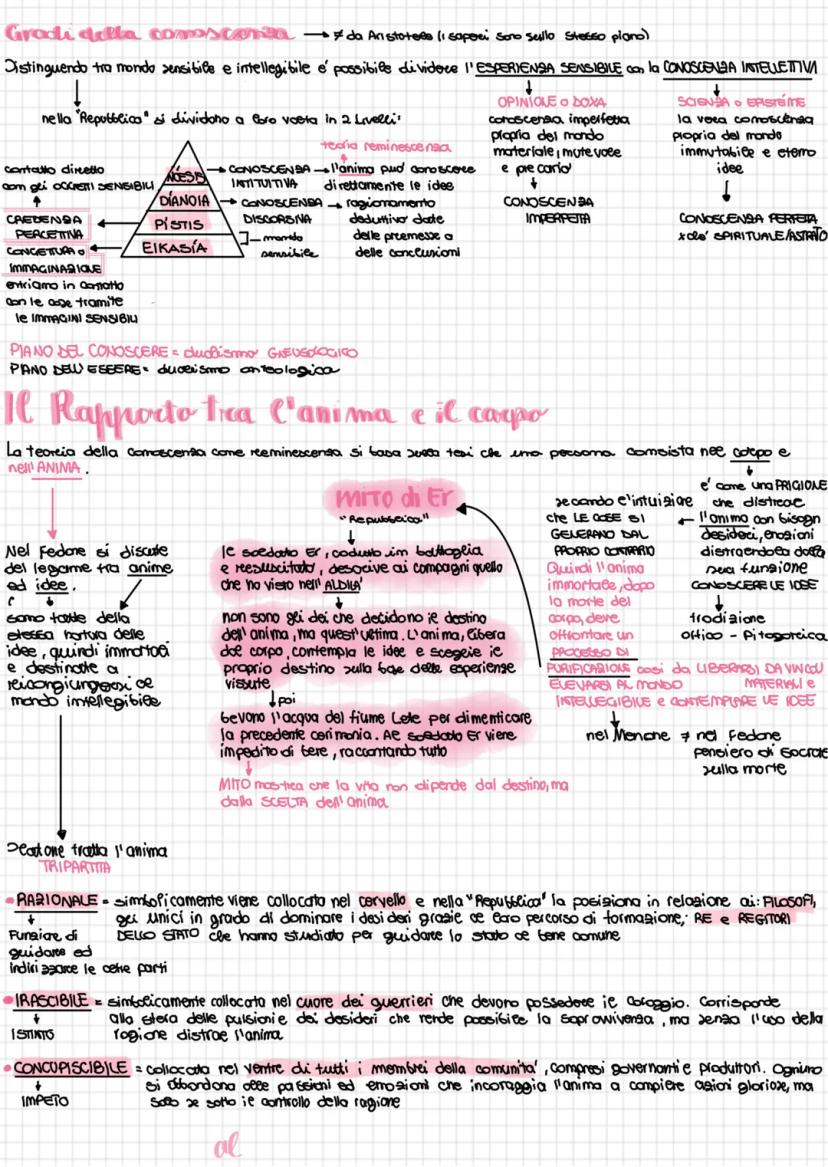 Gradi della conoscenza → ≠ da Aristotele (i saperi sono sullo stesso piano)
Distinguendo tra mondo sensibile e intellegibile e' possibile dividere l'ESPERIENZA SENSIBILE con la CONOSCENZA INTELLETTIVA
nella "Repubblica" si dividono a loro volta in 2 livelli:
OPINIONE o DOXA
conoscenza imperfetta
propria del mondo
materiale, mutevole
e precario'
CONOSCENZA
IMPERFETTA
SCIENZA o EPISTÉME
la vera conoscenza
propria del mondo
immutabile e eterno
idee
CONOSCENZA PERFETTA
xché SPIRITUALE/ASTRATTO
teoria reminescenza
NÓESIS → CONOSCENZA INTITUTIVA → l'anima puo' conoscere
direttamente le idee
DÍANOIA → CONOSCENZA DISCORSIVA → ragionamento
deduttivo date
delle premesse a
delle conclusioni
PÍSTIS
EIKASÍA
mondo
sensibile
contatto diretto
con gli OGGETTI SENSIBILI
CREDENZA
PERCETTIVA
CONGETTURA o
IMMAGINAZIONE
entriamo in contatto
con le cose tramite
le IMMAGINI SENSIBILI
PIANO DEL CONOSCERE = dualismo GNEUSOLOGICO
PIANO DELL'ESSERE = dualismo onteologica
Il Rapporto tra l'anima e il corpo
La teoria della conoscenza come reminescenza si basa sulla tesi che una persona consista nel corpo e
nell'ANIMA.
Nel Fedone si discute
del legame tra anime
ed idee.
sono fatte della
stessa natura delle
idee, quindi immortali
e destinate a
ricongiungersi al
mondo intellegibile
MITO di Er
"Repubblica"
le soldato Er, caduto in battaglia
e resuscitato, descrive ai compagni quello
che ha visto nell'ALDILA'
non sono gli dei che decidono il destino
dell'anima, ma quest'ultima. L'anima, libera
dal corpo, contempla le idee e sceglie il
proprio destino sulla base delle esperienze
vissute
poi
bevono l'acqua del fiume Lete per dimenticare
la precedente cerimonia. Al soldato Er viene
impedito di bere, raccontando tutto
MITO mostra che la vita non dipende dal destino, ma
dalla SCELTA dell'anima
secondo l'intuizione
che LE COSE SI
GENERANO DAL
PROPRIO CONTRARIO
Quindi l'anima
immortale, dopo
la morte del
corpo, deve
affrontare un
PROCESSO DI
PURIFICAZIONE cosi da LIBERARSI DA VINCOLI
ELEVARSI AL MONDO MATERIALI e
INTELLEGIBILE e CONTEMPLARE LE IDEE
e' come una PRIGIONE
che distrae
l'anima con bisogni
desideri, emozioni
distraendola dalla
sua funzione
CONOSCERE LE IDEE
tradizione
orfico - Pitagorica
nel Menone ≠ nel Fedone
pensiero di Socrate
sulla morte
Platone tratta l'anima
TRIPARTITA
• RAZIONALE = simbolicamente viene collocata nel cervello e nella "Repubblica" la posiziona in relazione ai: FILOSOFI,
gli unici in grado di dominare i desideri grazie al loro percorso di formazione; RE e REGITORI
DELLO STATO che hanno studiato per guidare lo stato al bene comune
Funzione di
guidare ed
indirizzare le altre parti
• IRASCIBILE = simbolicamente collocata nel cuore dei guerrieri che devono possedere il coraggio. Corrisponde
alla sfera delle pulsioni e dei desideri che rende possibile la sopravvivenza, ma senza l'uso della
ragione distrae l'anima
ISTINTO
• CONCUPISCIBILE = collocata nel ventre di tutti i membri della comunita', compresi governanti e produttori. Ognuno
si abbandona alle passioni ed emozioni che incoraggia l'anima a compiere azioni gloriose, ma
solo se sotto il controllo della ragione
IMPETO
al